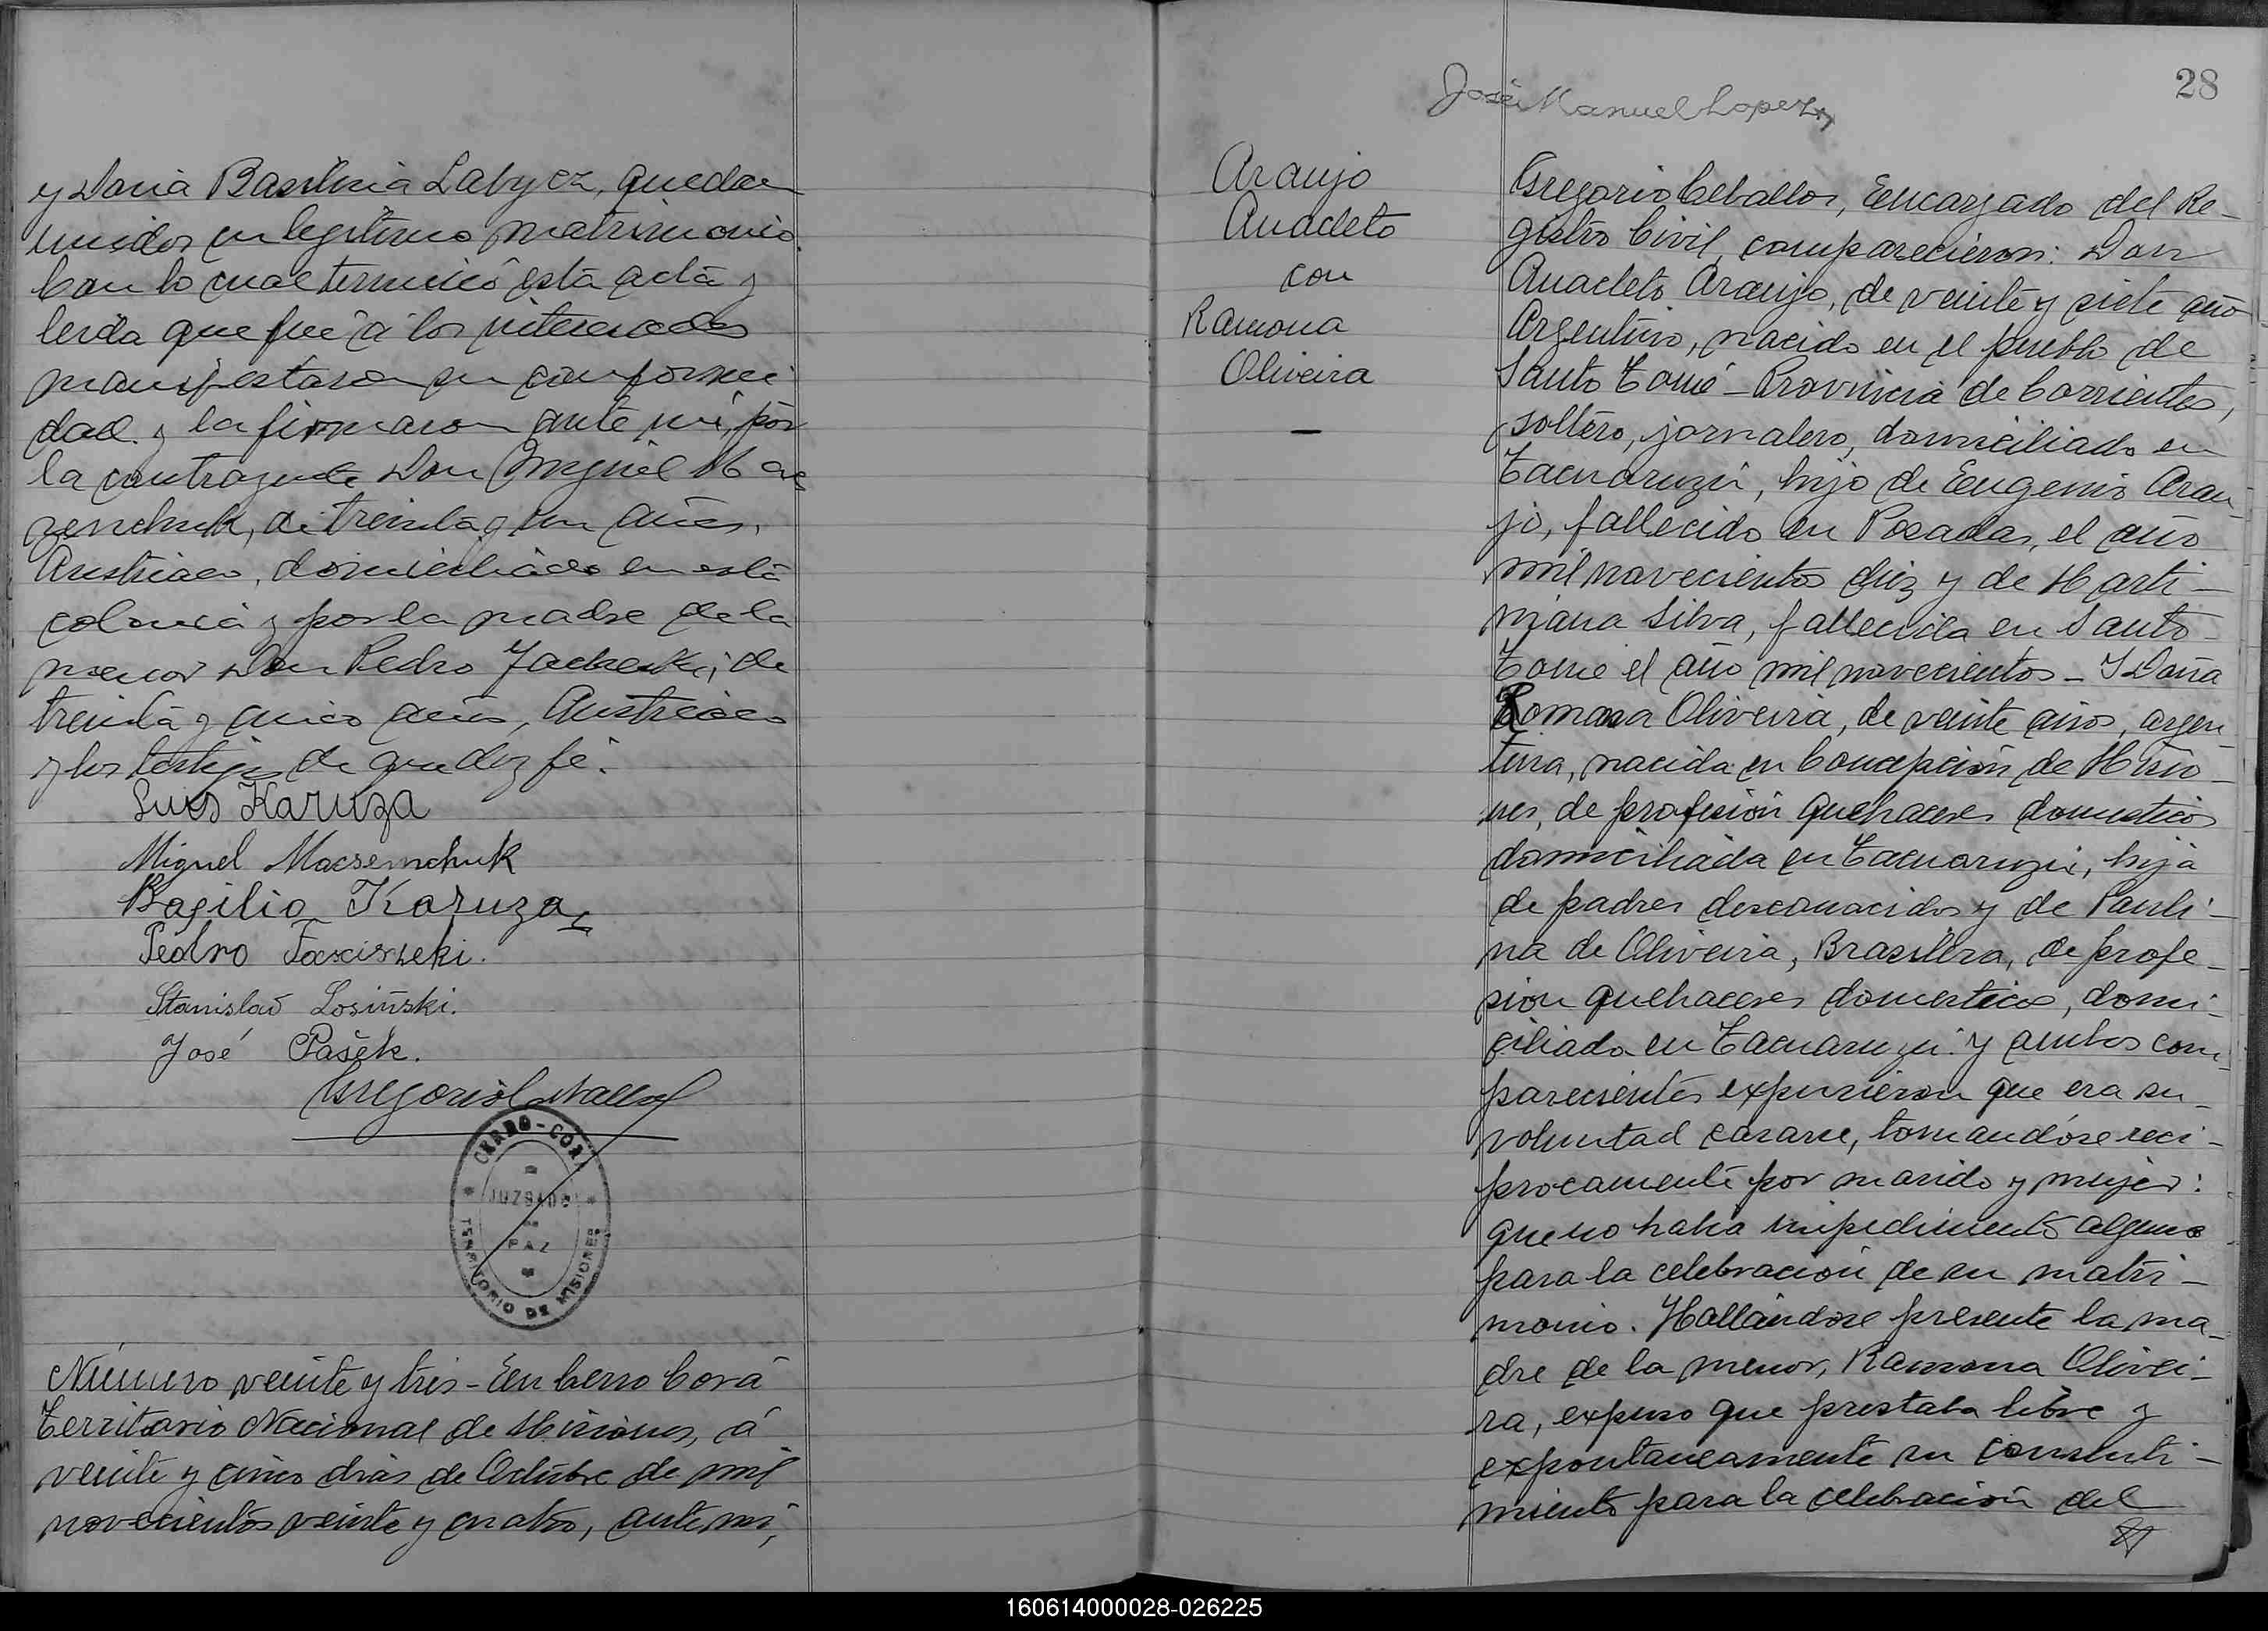 y Doña Basilicia Labycz, quedan
unidos en legitimo matrimonio.
Con lo cual terminó esta acta y
leida que fue á los interesados
manifestaron su conformi
dad y la firmaron ante mi, por
la contrayente Don Miguel Mac
zenchuk, de treinta y un años,
Austriaco, domiciliado en esta
colonia y por la madre de la
menor Don Pedro Jacheski, de
treinta y cinco años, Austriaco
y los testigos de que doy fé.
Luis Karuza
Miguel Macsemchuk
Basilio Karuza
Pedro
Stanislaw Losiński.
José Pašek.
Gregorio Ceballos
CERRO-CORA
JUZGADO
PAZ
TERRITORIO DE MISIONES
Número veinte y tres - En Cerro Corá
Territorio Nacional de Misiones, á
veinte y cinco dias de Octubre de mil
novecientos veinte y cuatro, ante mi,
28
José Manuel Lopez
Araujo
Anacleto
con
Ramona
Oliveira
Gregorio Ceballos, Encargado del Re-
gistro Civil, comparecieron: Don
Anacleto Araujo, de veinte y siete año
Argentino, nacido en el pueblo de
Santo Tomé - Provincia de Corrientes,
soltero, jornalero, domiciliado en
Tacuaruzú, hijo de Eugenio Arau-
jo, fallecido en Posadas, el año
mil novecientos diez y de Marti-
niana Silva, fallecida en Santo-
Tomé el año mil novecientos - Y Doña
Romana Oliveira, de veinte años, argen-
tina, nacida en Concepción de Misio-
nes, de profesión quehaceres domesticos
domiciliada en Tacuaruzú, hija
de padres desconocidos y de Pauli-
na de Oliveira, Brasilera, de profe-
sion quehaceres domesticos, domi-
ciliada en Tacuaruzú. y ambos com-
parecientes expusieron que era su-
voluntad casarse, tomandóse reci-
procamente por marido y mujer:
que no habia impedimento alguno
para la celebración de su matri-
monio. Hallándose presente la ma-
dre de la menor, Ramona Olivei-
ra, expuso que prestaba libre y
expontaneamente su consenti-
miento para la celebración del
160614000028-026225